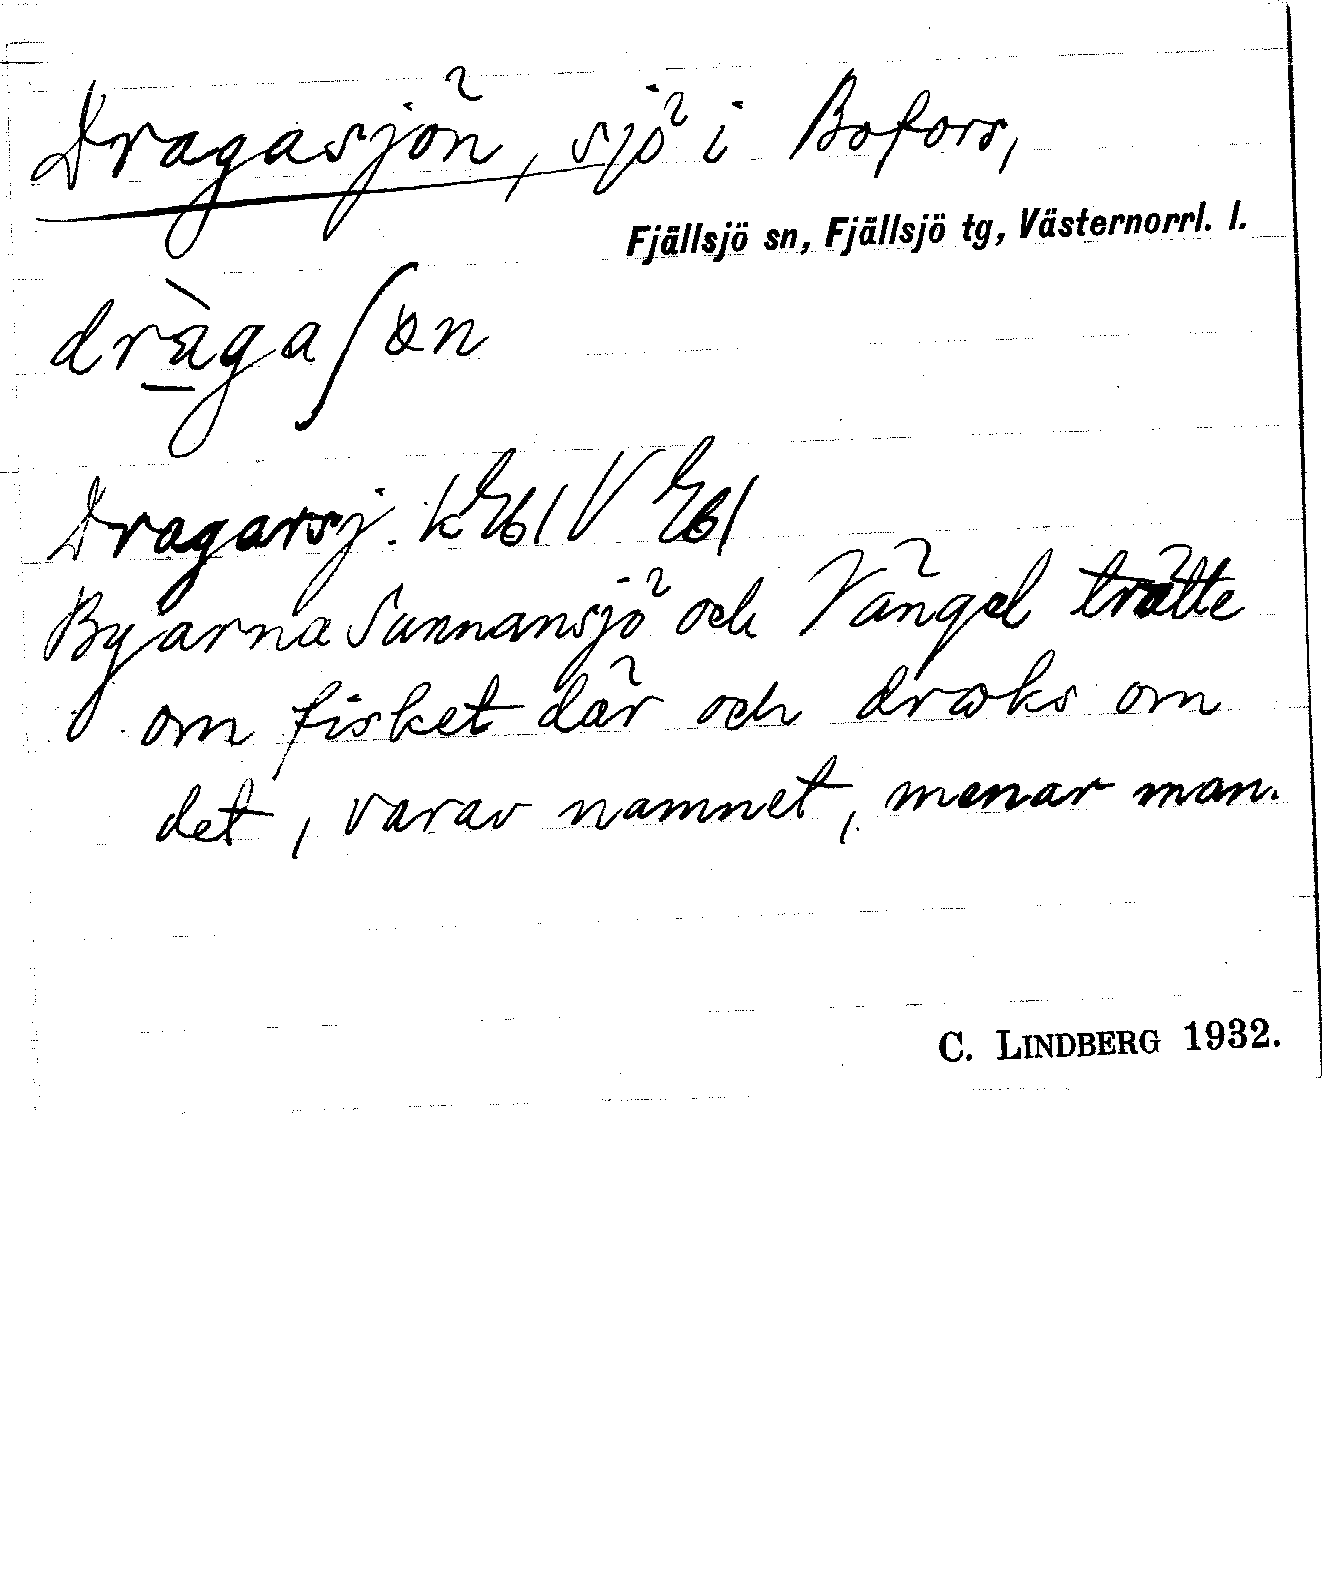 Dragasjön, sjö i Bofors,
Fjällsjö sn, Fjällsjö tg, Västernorrl. l.
dràgaʃøn
Dragarsj.
Byarna Sunnansjö och Vängel trätte
om fisket där och droks om
det, varav namnet, menar man.
C. LINDBERG 1932.